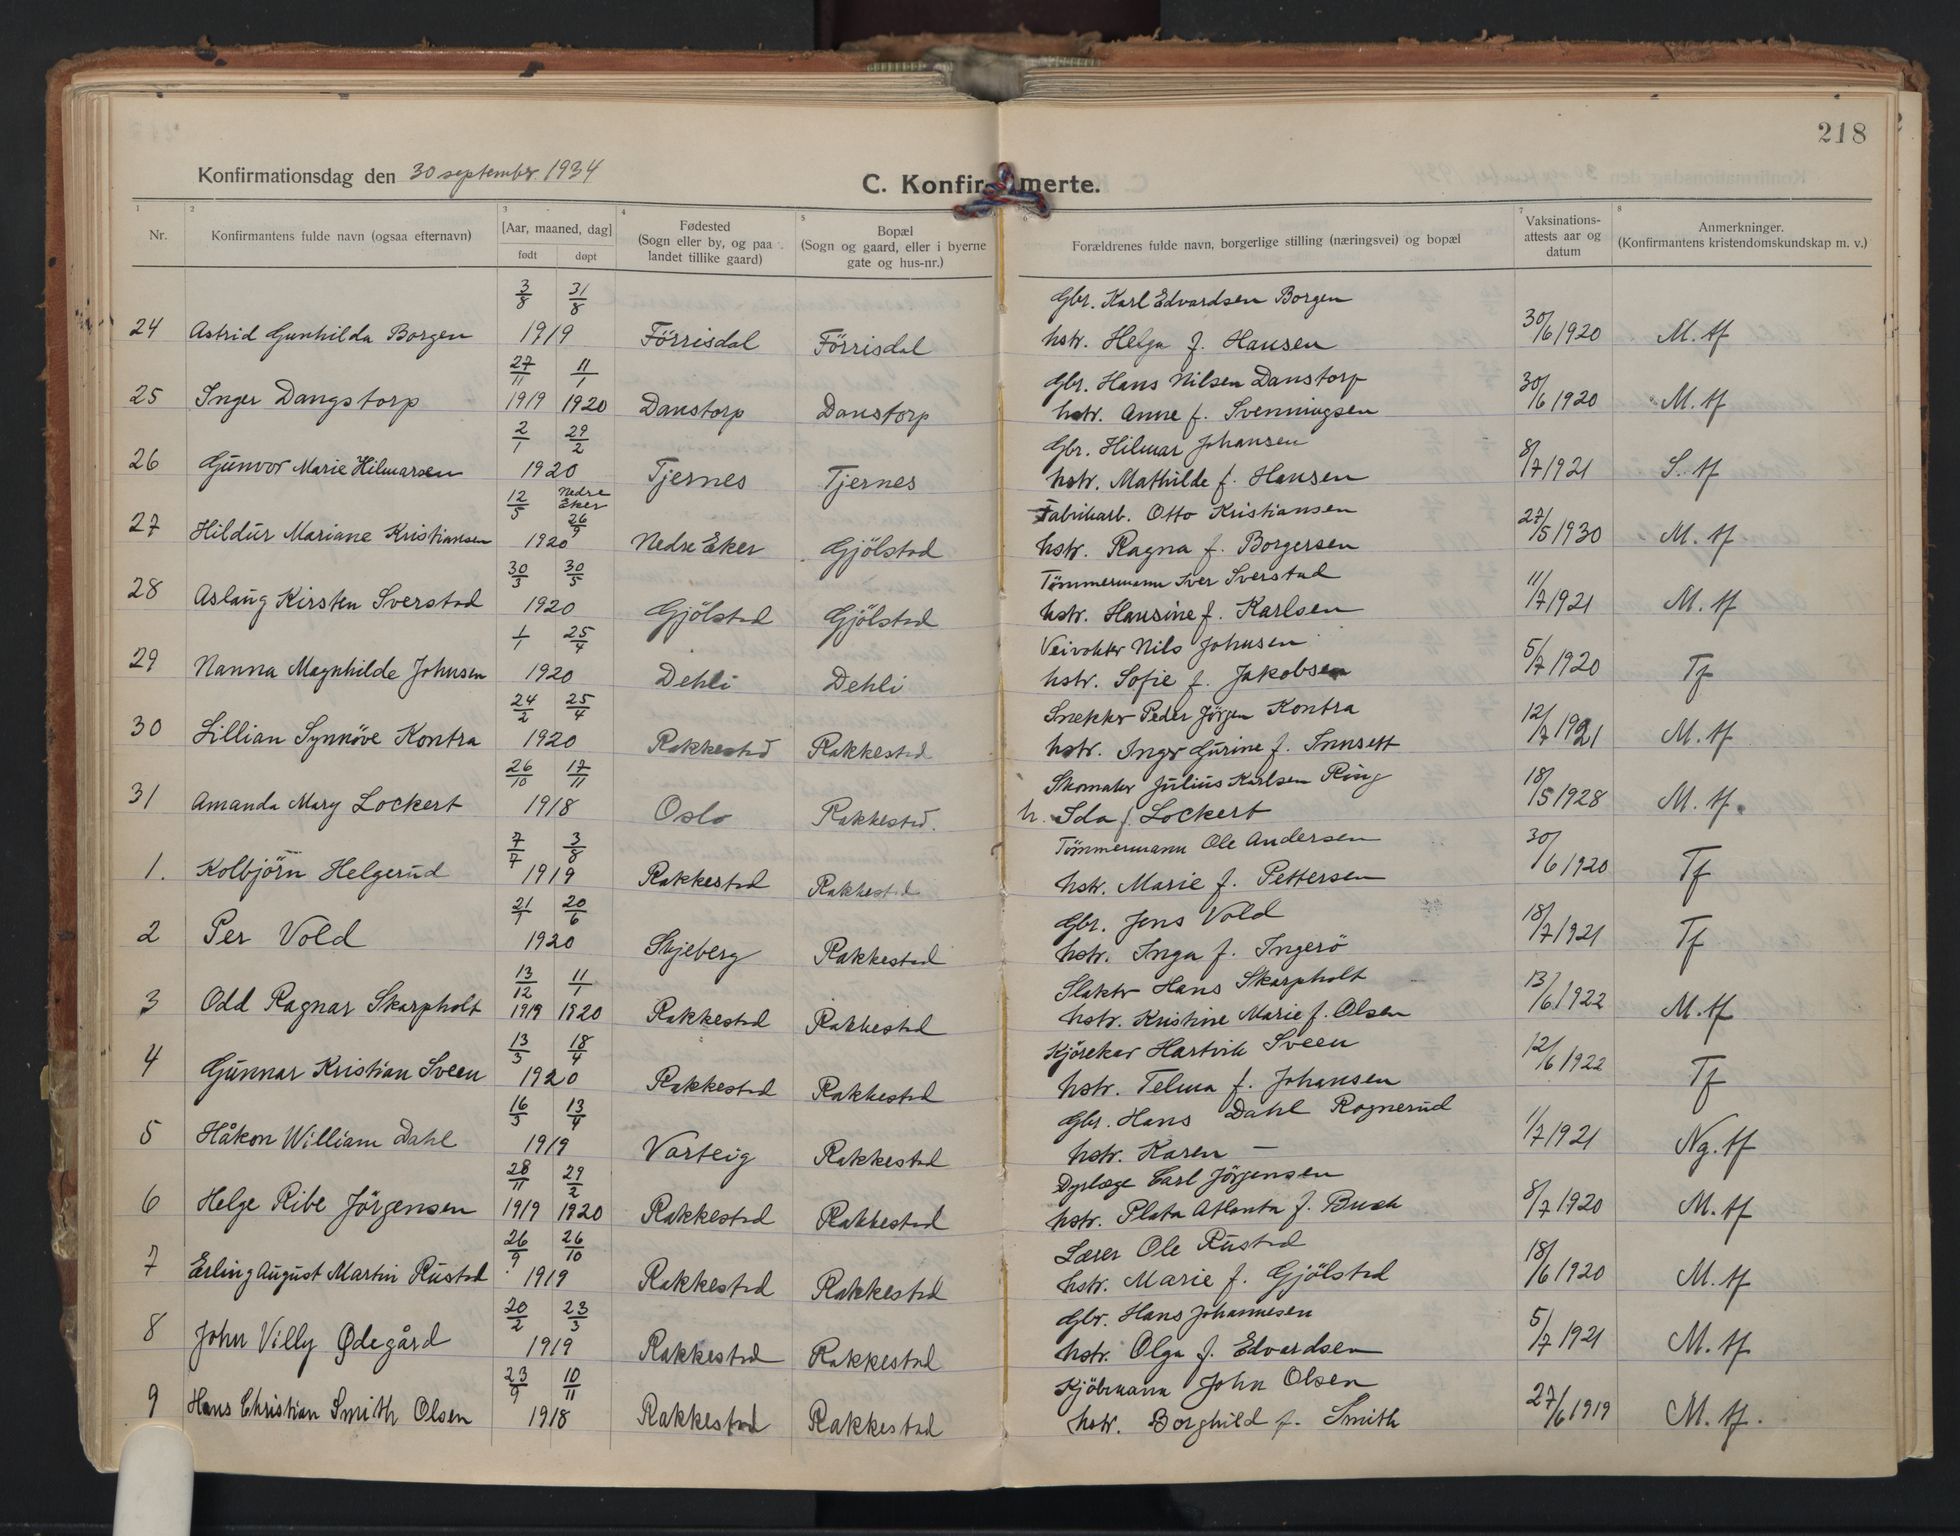 218
Konfirmationsdag den 30 september 1934
C. Konfir merte.
1 2 3 4 5 6 7 8
Nr. Konfirmantens fulde navn (ogsaa efternavn) [Aar, maaned, dag] født døpt Fødested (Sogn eller by, og paa landet tillike gaard) Bopæl (Sogn og gaard, eller i byerne gate og hus-nr.) Forældrenes fulde navn, borgerlige stilling (næringsvei) og bopæl Vaksinations-attests aar og datum Anmerkninger. (Konfirmantens kristendomskundskap m. v.)
3/8 31/8 Gbr. Karl Edvardsen Borgen
24 Astrid Gunhilda Borgen 1919 Förrisdal Förrisdal hstr. Helga f. Hansen 30/6 1920 M. tf
27/11 11/1 Gbr. Hans Nilsen Danstorp
25 Inger Dangstorp 1919 1920 Danstorp Danstorp hstr. Anne f. Svenningsen 30/6 1920 M. tf
2/1 29/2 Gbr. Hilmar Johansen
26 Gunvor Marie Hilmarsen 1920 Tjernes Tjernes hstr. Mathilde f. Hansen 8/7 1921 S. tf
12/5 Nedre Eker 26/9 Fabrikarb. Otto Kristiansen
27 Hildur Mariane Kristiansen 1920 Nedre Eker Gjölstad hstr. Ragna f. Borgersen 27/5 1930 M. tf
30/3 30/5 Tömmermann Iver Sverstad
28 Aslaug Kirsten Sverstad 1920 Gjölstad Gjölstad hstr. Hansine f. Karlsen 11/7 1921 M. tf
1/1 25/4 Veivokter Nils Johnsen
29 Nanna Magnhilde Johnsen 1920 Dehli Dehli hstr. Sofie f. Jakobsen 5/7 1920 Tf
24/2 25/4 Snekker Peder Jörgen Kontra
30 Lillian Synnöve Kontra 1920 Rakkestad Rakkestad hstr. Inger Gurine f. 12/7 1921 M. tf
26/10 17/11 Skomaker Julius Karlsen Ring
31 Amanda Mary Lockert 1918 Oslo Rakkestad. h. Ida f. Lockert 18/5 1928 M. tf.
7/7 3/8 Tömmermann Ole Andersen
1. Kolbjörn Helgerud 1919 Rakkestad Rakkestad hstr. Marie f. Pettersen 30/6 1920 Tf
21/1 20/6 Gbr. Jens Vold
2 Per Vold 1920 Skjeberg Rakkestad hstr. Inga f. Ingerö 18/7 1921 Tf
13/12 11/1 Slakter Hans Skarpholt
3 Odd Ragnar Skarpholt 1919 1920 Rakkestad Rakkestad hstr. Kristine Marie f. Olsen 13/6 1922 M. tf
13/3 18/4 Kjörekar Hartvik Sveen
4 Gunnar Kristian Sveen 1920 Rakkestad Rakkestad hstr. Telma f. Johansen 12/6 1922 Tf
16/3 13/4 Gbr. Hans Dahl Rognerud
5 Håkon William Dahl 1919 Varteig Rakkestad hstr. Karen — 1/7 1921 Ng. tf
28/11 29/2 Dyrlæge Carl Jörgensen
6 Helge Ribe Jörgensen 1919 1920 Rakkestad Rakkestad hstr. Plata Atlanta f. Buch 8/7 1920 M. tf
26/9 26/10 Lærer Ole Rustad
7 Erling August Martin Rustad 1919 Rakkestad Rakkestad hstr. Marie f. Gjölstad 18/6 1920 M. tf
20/2 23/3 Gbr. Hans Johannesen
8 John Villy Ødegård 1919 Rakkestad Rakkestad hstr. Olga f. Edvardsen 5/7 1921 M. tf
23/9 10/11 Kjöbmann John Olsen
9 Hans Christian Smith Olsen 1918 Rakkestad Rakkestad hstr. Borghild f. Smith 27/6 1919 M. tf.